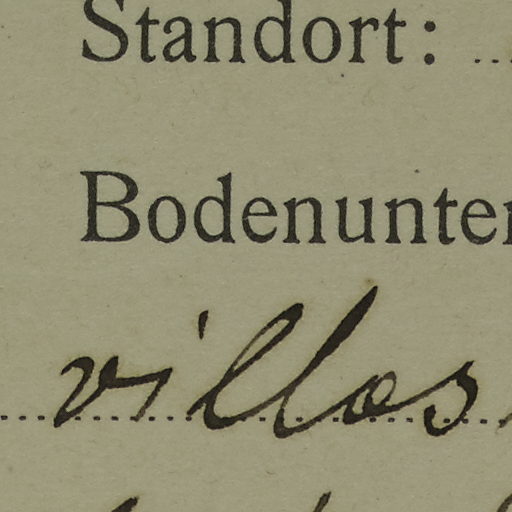 Standort: ..
Bodenunter
villos